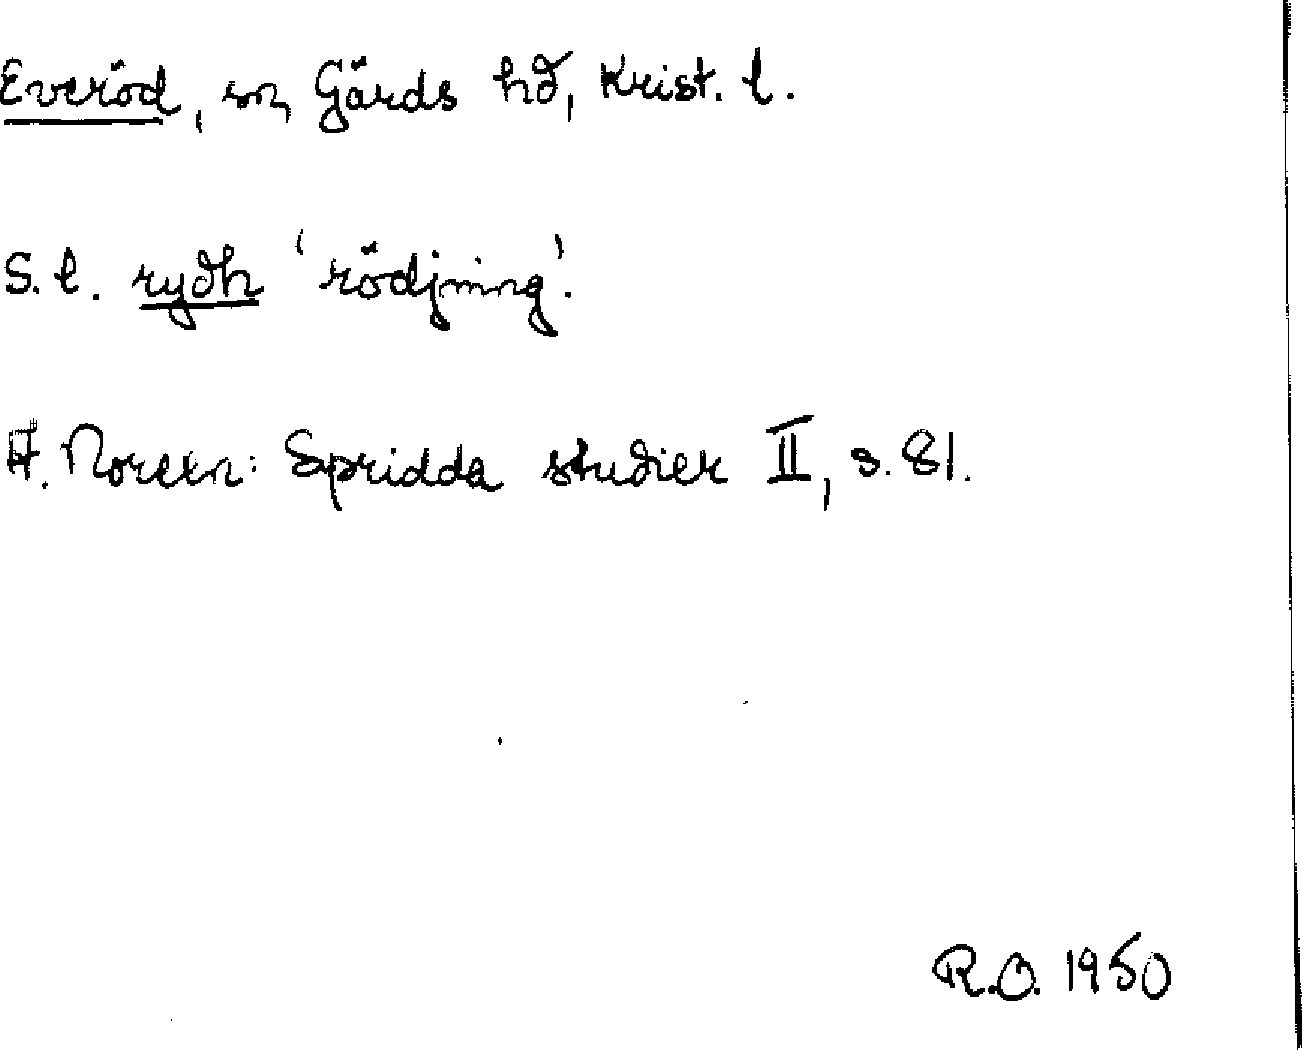 Everöd, sn, Gärds hd, Krist. l.
S. l. rydh 'rödjning'.
A. Noreen: Spridda studier II, s. 81.
R.O. 1950